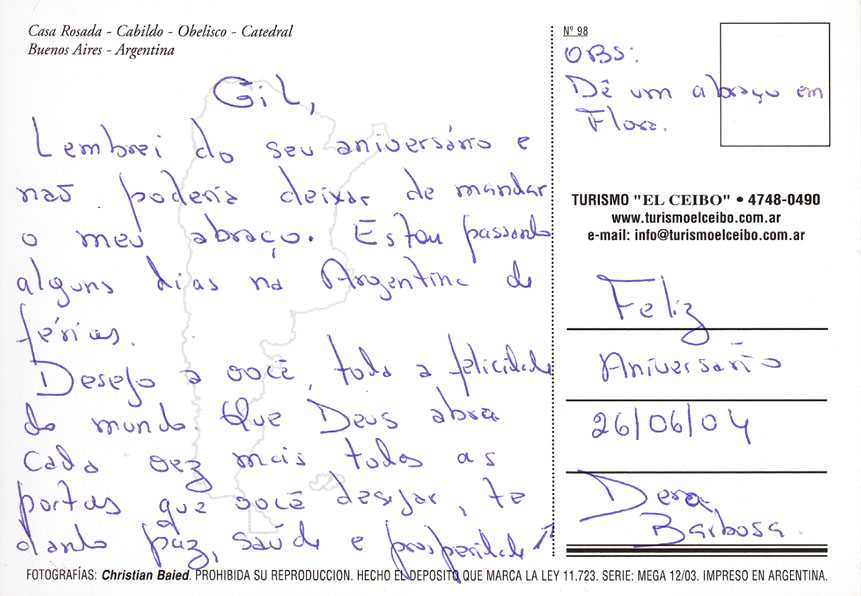 Casa Rosada - Cabildo - Obelisco - Catedral
Buenos Aires - Argentina
Gil,
Lembrei do seu aniversário e
não poderia deixar de mandar
o meu abraço. Estou passando
alguns dias na Argentina de
férias.
Desejo a você, toda a felicidade
do mundo. Que Deus abra
cada vez mais todas as
portas que você desejar, te
dando paz, saúde e prosperidade
Nº 98
OBS:
Dê um abraço em
Flora.
TURISMO "EL CEIBO" • 4748-0490
www.turismoelceibo.com.ar
e-mail: info@turismoelceibo.com.ar
Feliz
Aniversário
26/06/04
Barbosa.
FOTOGRAFÍAS: Christian Baied. PROHIBIDA SU REPRODUCCION. HECHO EL DEPOSITO QUE MARCA LA LEY 11.723. SERIE: MEGA 12/03. IMPRESO EN ARGENTINA.